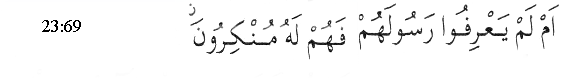 23:69 اَمْ لَمْ يَعْرِفُوا رَسُولَهُمْ فَهُمْ لَهُ مُنْكِرُونَۙ